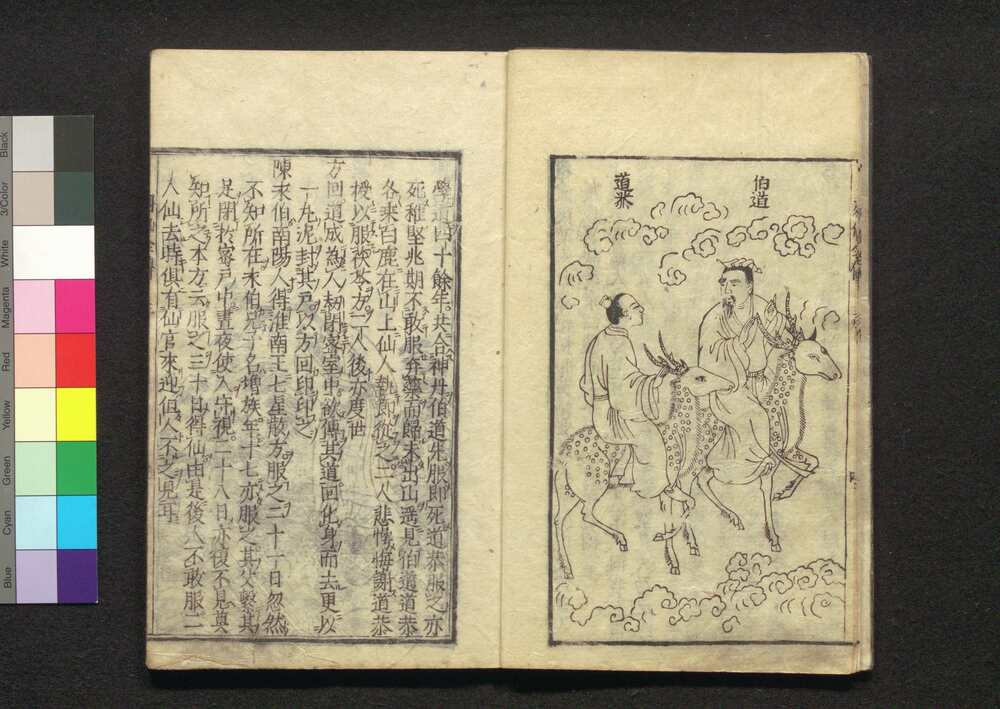 伯道
道恭
學道四十餘年共合神丹伯道先服即死道恭服之亦
死稚堅兆期不敢服弃藥而歸未出山遥見伯道道恭
各乘白鹿在山上仙人執節從之二人悲愕悔謝道恭
授以服茯苓方二人後亦度世
方回道成為人劫閉密室中欲傳其道回化身而去更以
一丸泥封其戸以方回印印之
陳永伯南陽人得淮南王七星散方服之二十一日忽然
不知所在永伯兄子名增族年十七亦服之其父繫其
足閉於密戸中晝夜使人守視二十八日亦復不見莫
知所之本方云服之三十日得仙由是後人不敢服二
人仙去時俱有仙官來迎但人不之見耳
Black
3/Color
White
Magenta
Red
Yellow
Green
Cyan
Blue